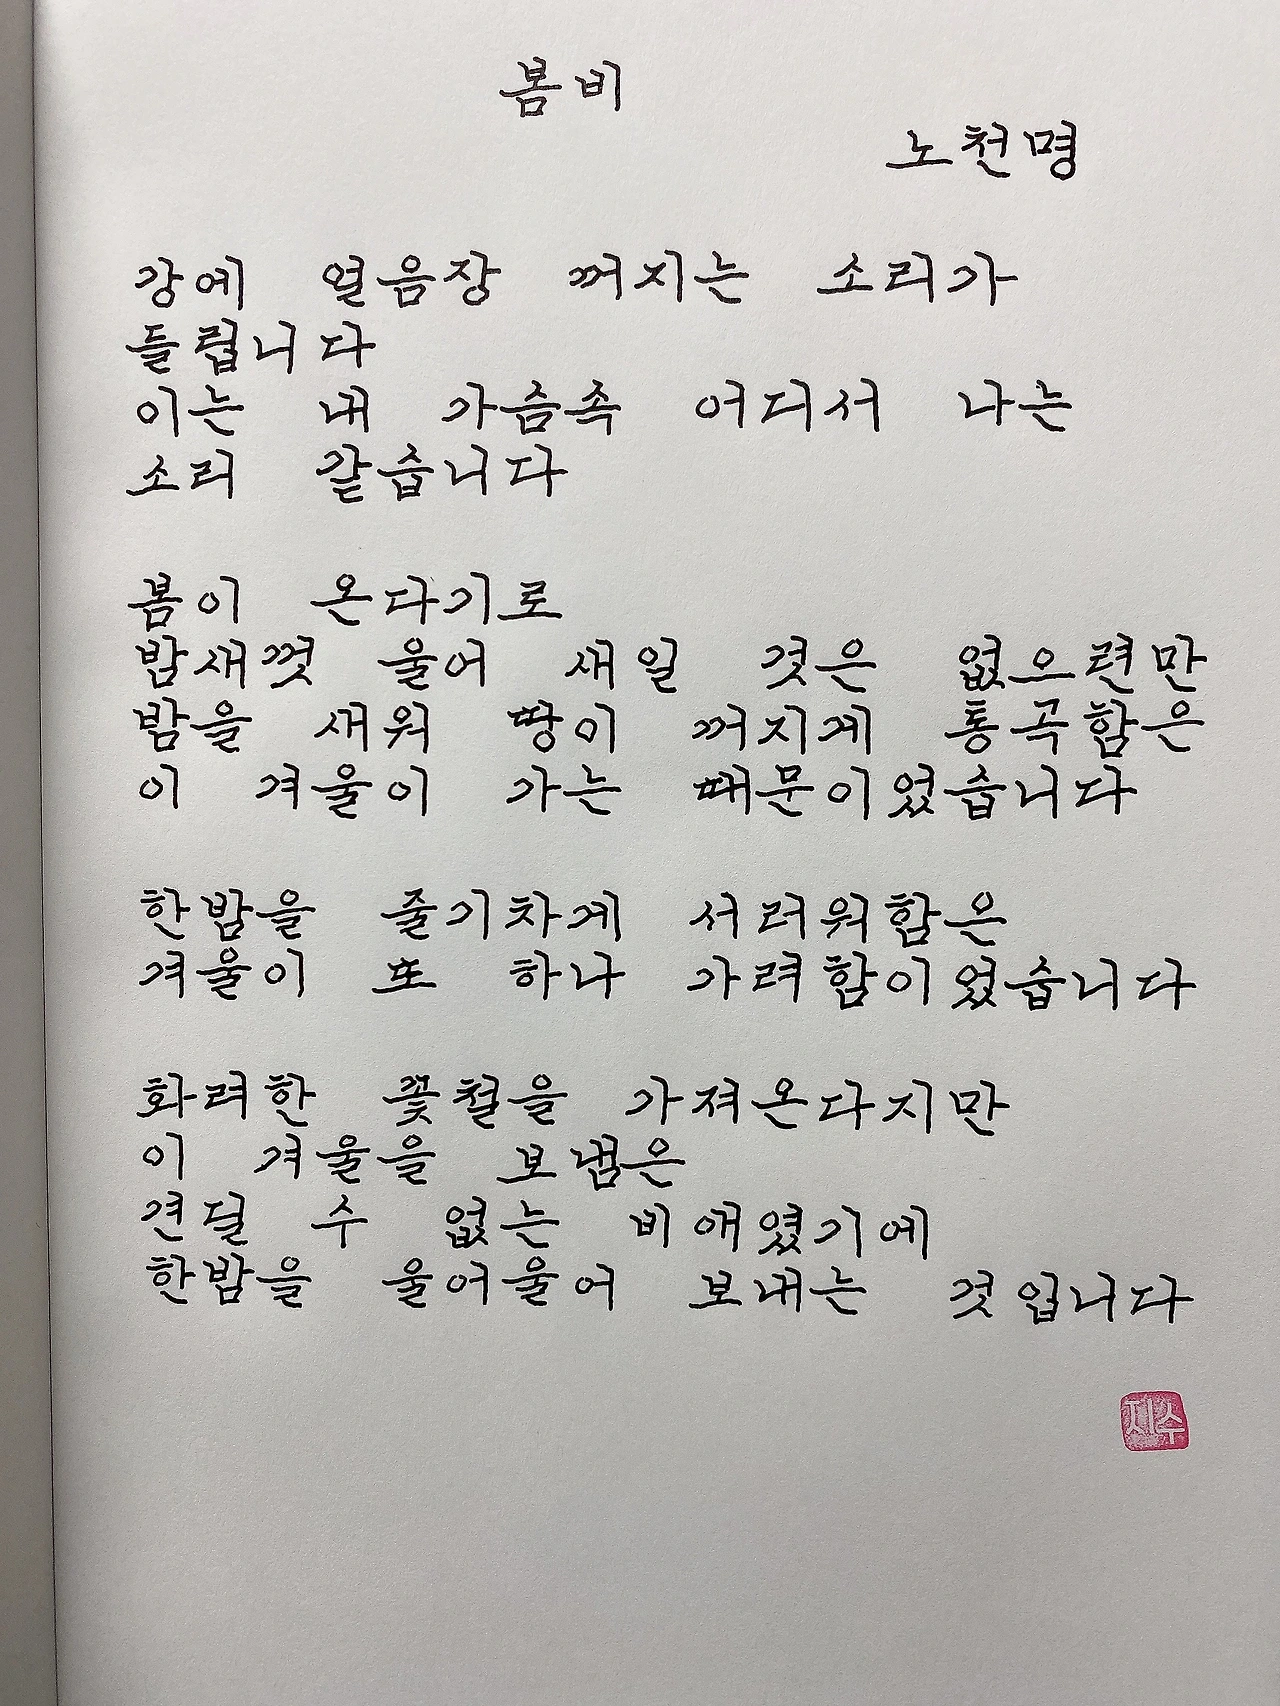 봄비
노천명
강에 얼음장 꺼지는 소리가
들립니다
이는 내 가슴속 어디서 나는
소리 같습니다
봄이 온다기로
밤새껏 울어 새일 것은 없으련만
밤을 새워 땅이 꺼지게 통곡함은
이 겨울이 가는 때문이었습니다
한밤을 줄기차게 서러워함은
겨울이 또 하나 가려함이었습니다
화려한 꽃철을 가져온다지만
이 겨울을 보냄은
견딜 수 없는 비애였기에
한밤을 울어울어 보내는 것입니다
지수